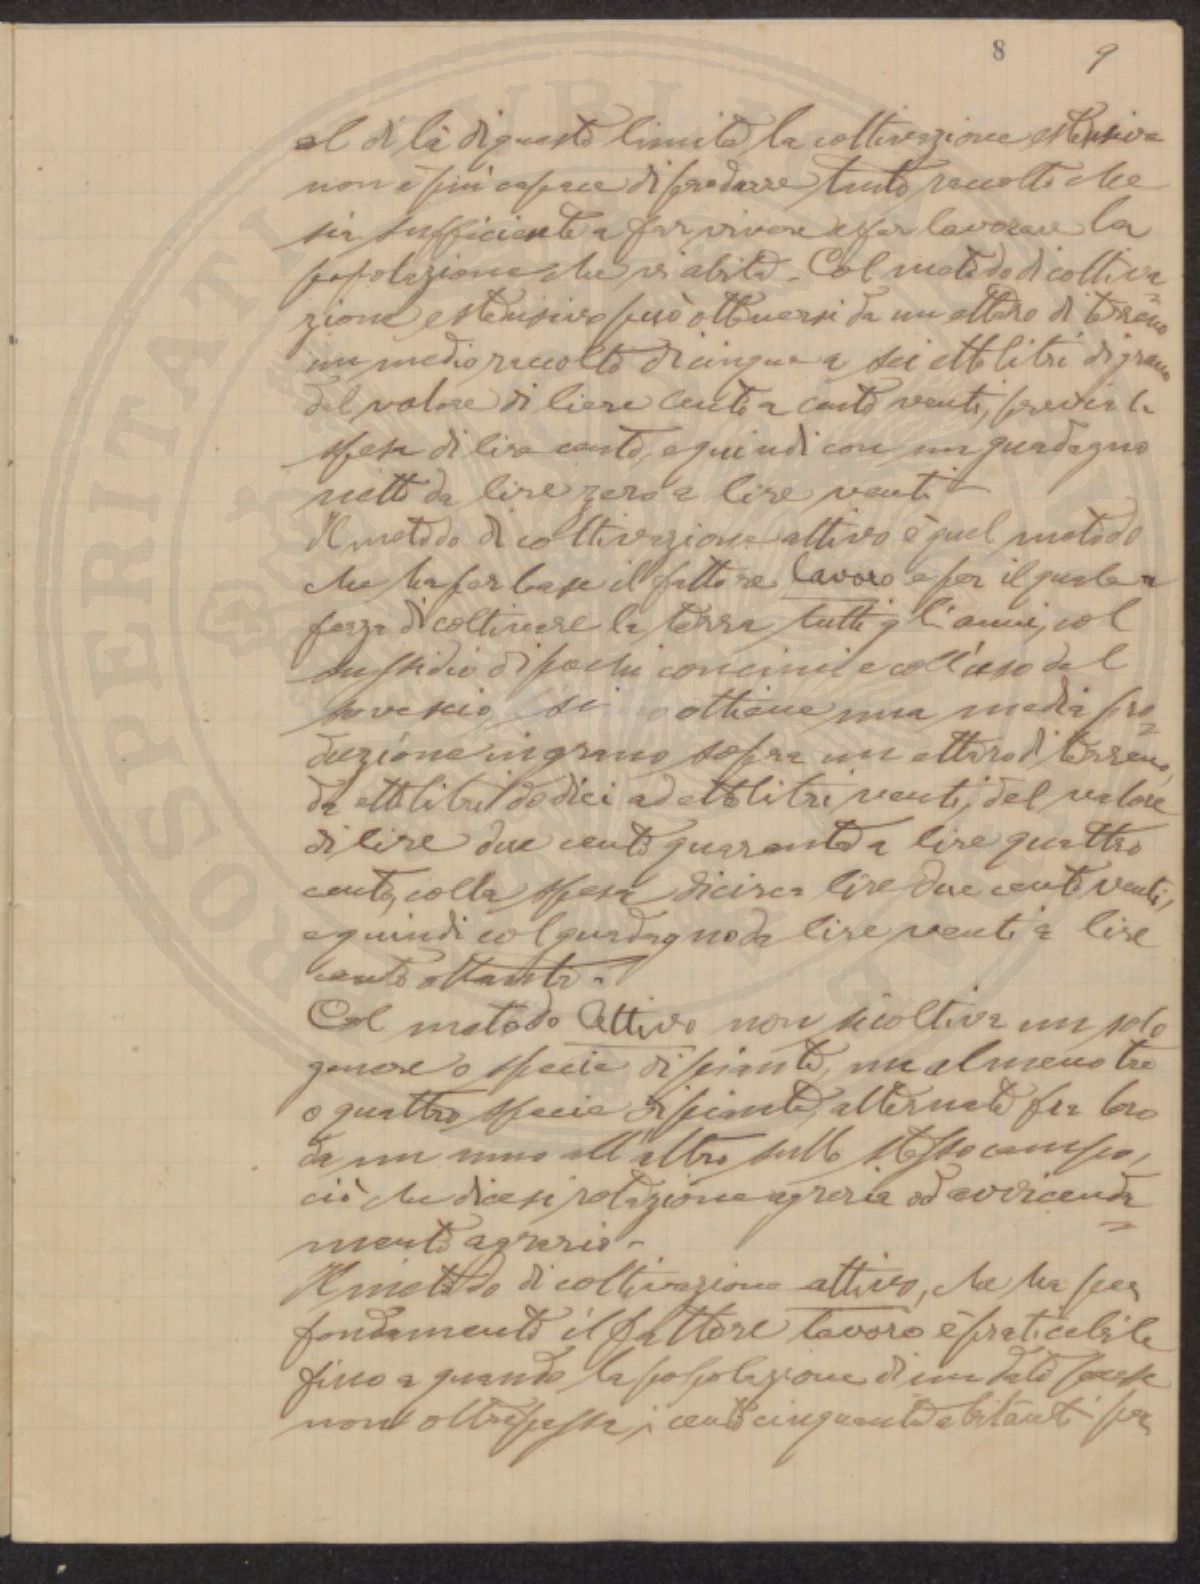 8 9
al di là di questo limite la coltivazione estensiva
non è più capace di produrre tanto raccolto che
sia sufficiente a far vivere e far lavorare la
popolazione che vi abita. Col metodo di coltiva
zione estensivo può ottenersi da un ettaro di terreno
un medio raccolto di cinque a sei ettolitri di grano
del valore di liere cento a cento venti, previa la
spesa di lire cento, e quindi con un guadagno
netto da lire zero a lire venti -
Il metodo di coltivazione attivo è quel metodo
che ha per base il fattore lavoro e per il quale a
forza di coltivare la terra tutti gl'anni, col
sussidio di pochi concimi e coll'uso del
sovescio si ottiene una media pro=
duzione in grano sopra un ettaro di terreno,
da ettolitri dodici ad ettolitri venti, del valore
di lire due cento quaranta a lire quattro
cento, colla spesa di circa lire due cento venti,
e quindi col guadagno da lire venti a lire
cento ottanta.
Col metodo attivo non si coltiva un solo
genere o specie di piante, ma almeno tre
o quattro specie di piante, alternate fra loro
da un anno all'altro sullo stesso campo,
ciò che dicesi rotazione agraria od avvicenda=
mento agrario.
Il metodo di coltivazione attivo, che ha per
fondamento il fattore lavoro è praticabile
fino a quando la popolazione di un dato paese
non oltrepassa i cento cinquanta abitanti per